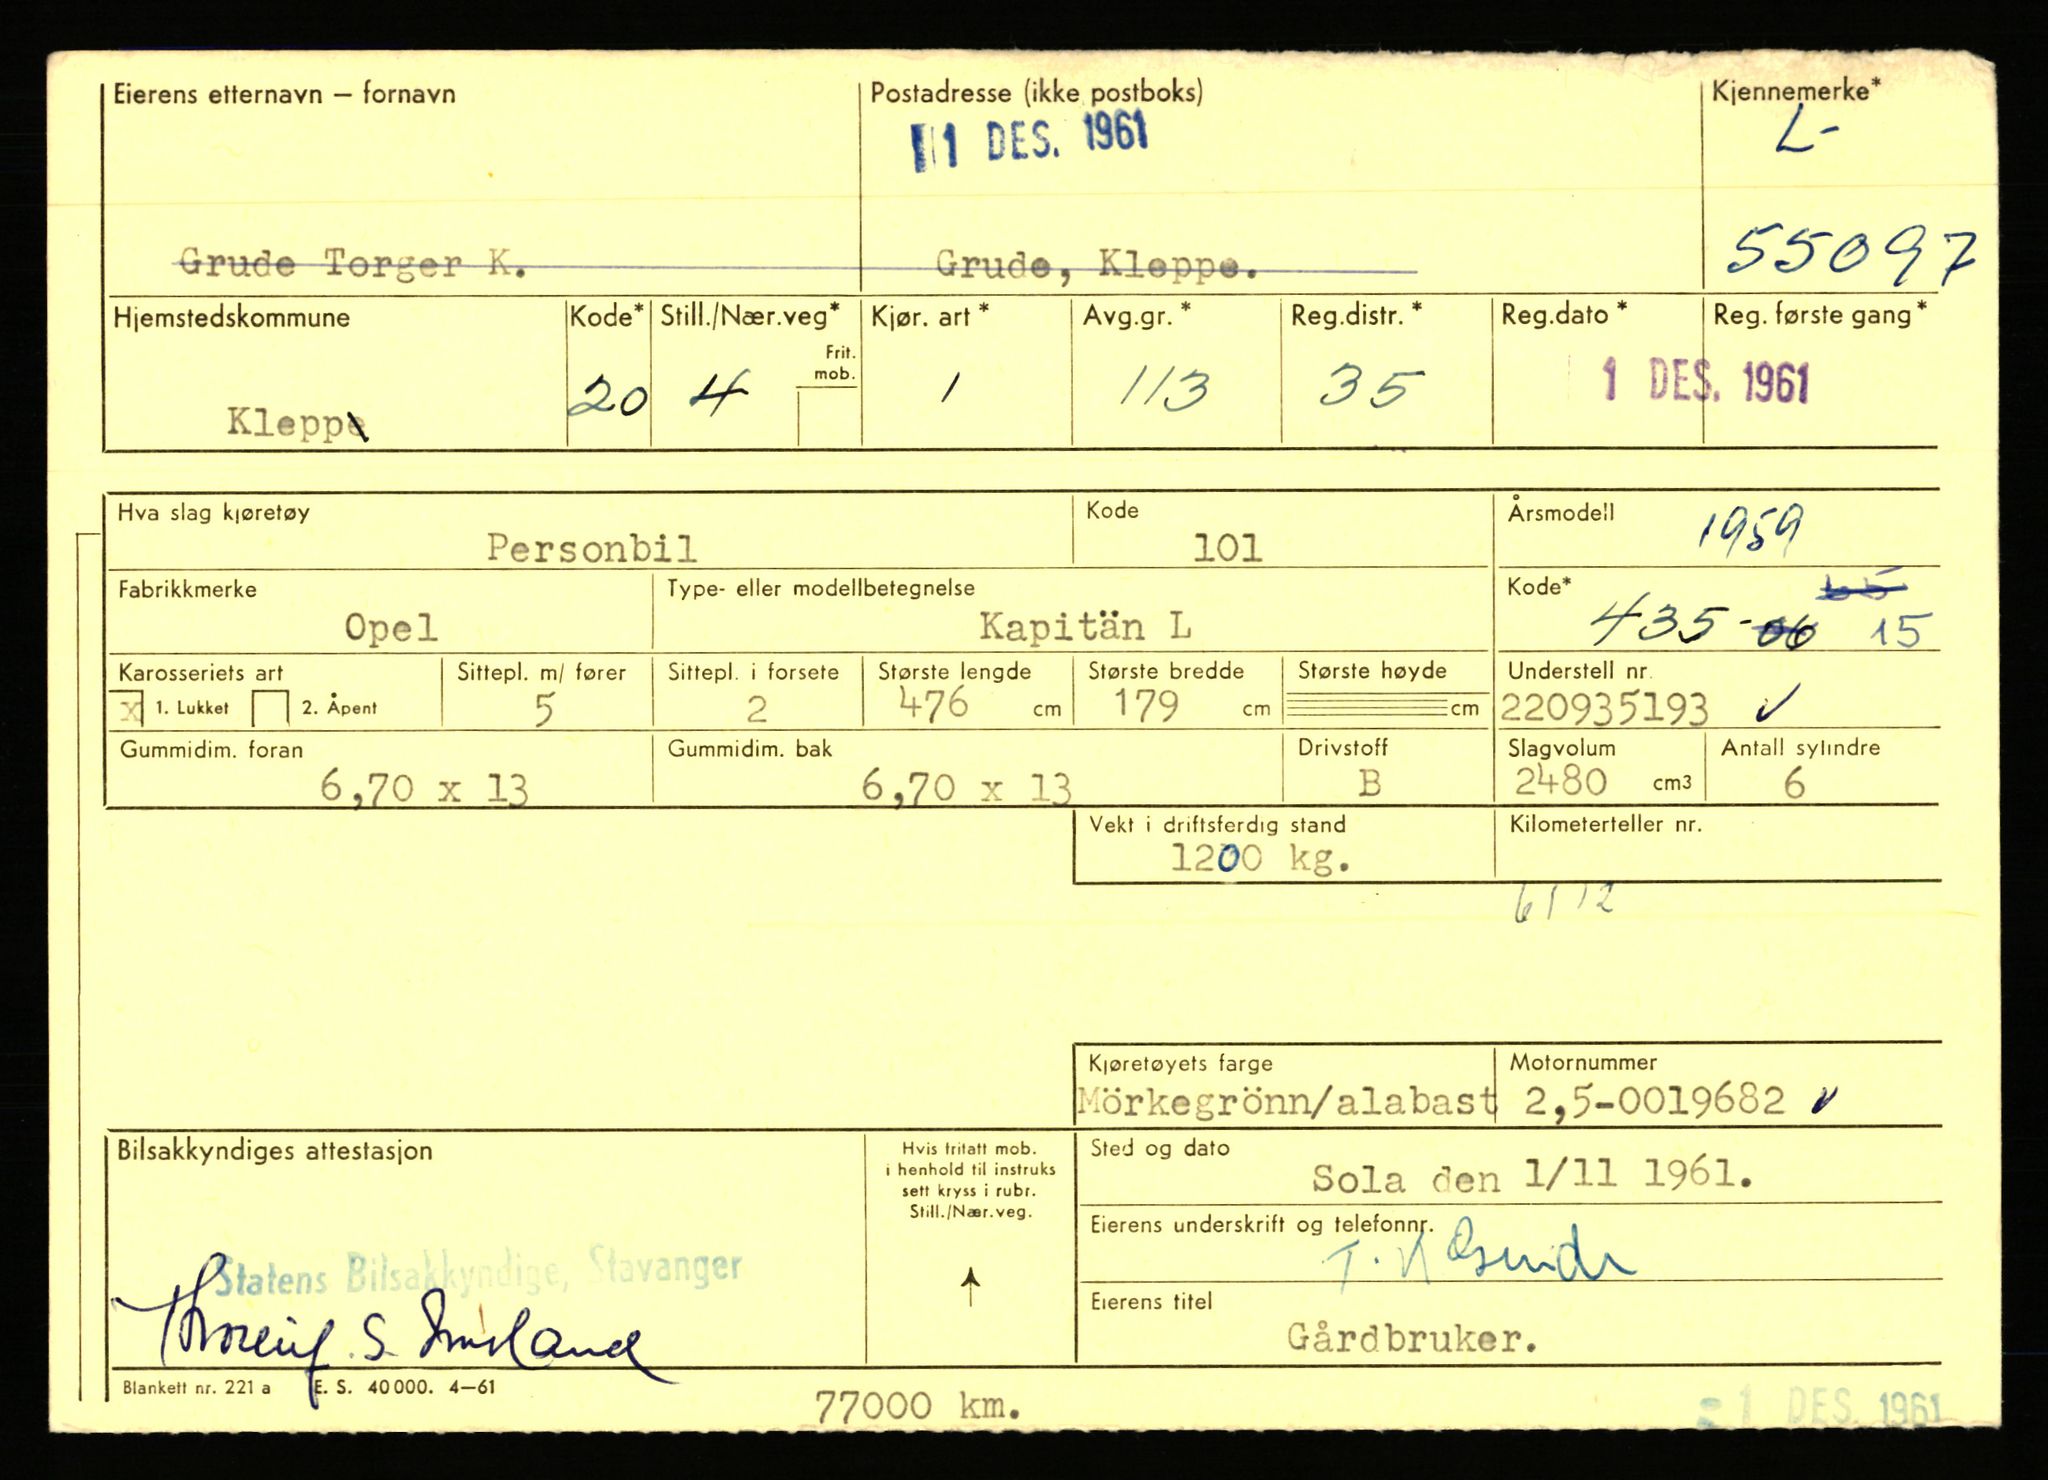 Eierens etternavn – fornavn
Postadresse (ikke postboks)
Kjennemerke*
1 DES. 1961
L-
Grude Torger K.
Grude, Kleppe.
55097
Hjemstedskommune
Kode*
Still./Nær.veg*
Frit. mob.
Kjør. art *
Avg.gr. *
Reg.distr. *
Reg.dato *
Reg. første gang *
Kleppe
20
4
1
113
35
1 DES. 1961
Hva slag kjøretøy
Personbil
Kode
101
Årsmodell
1959
Fabrikkmerke
Opel
Type- eller modellbetegnelse
Kapitän L
Kode*
65
435-06 15
Karosseriets art
x 1. Lukket 2. Åpent
Sittepl. m/ fører
5
Sittepl. i forsete
2
Største lengde
476 cm
Største bredde
179 cm
Største høyde
cm
Understell nr.
220935193
Gummidim. foran
6,70 x 13
Gummidim. bak
6,70 x 13
Drivstoff
B
Slagvolum
2480 cm3
Antall sylindre
6
Vekt i driftsferdig stand
1200 kg.
Kilometerteller nr.
6112
Kjøretøyets farge
Mörkegrönn/alabast
Motornummer
2,5-0019682
Bilsakkyndiges attestasjon
Hvis fritatt mob.
i henhold til instruks
sett kryss i rubr.
Still./Nær.veg.
Sted og dato
Sola den 1/11 1961.
Eierens underskrift og telefonnr.
T. K Grude
Statens Bilsakkyndige, Stavanger
Eierens titel
Gårdbruker.
Blankett nr. 221 a E. S. 40 000. 4–61
77000 km.
1 DES. 1961